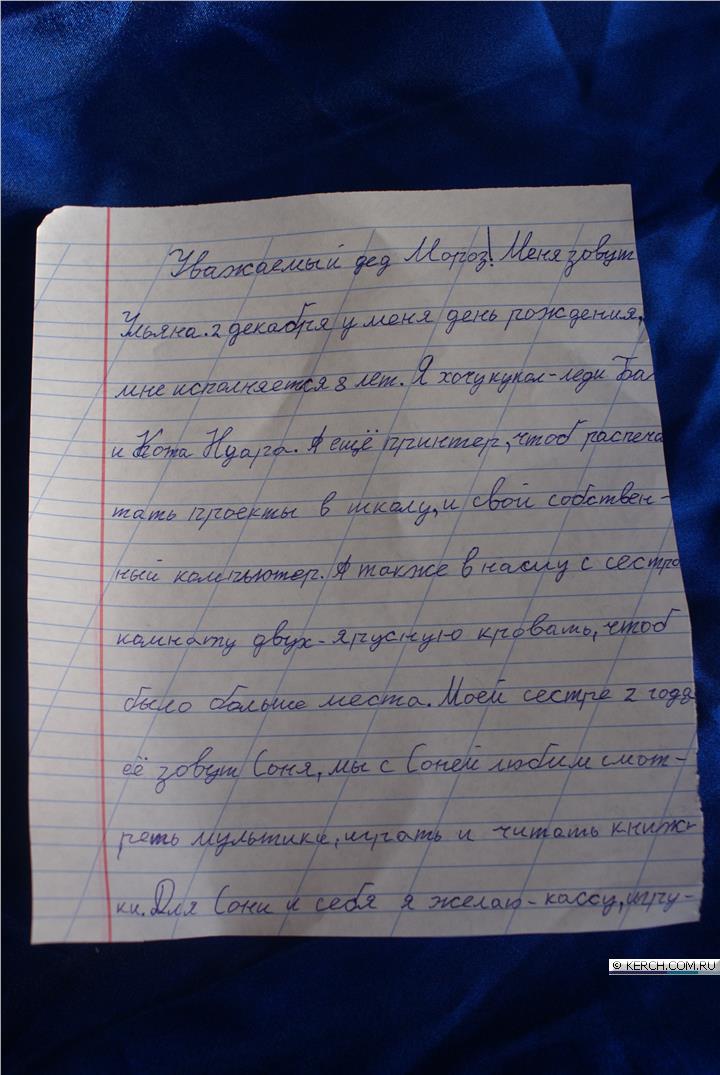 Уважаемый дед Мороз! Меня зовут
Ульяна. 2 декабря у меня день рождения,
мне исполняется 8 лет. Я хочу кукол-леди Ба
и Кота Нуара. А ещё принтер, чтоб распеча
тать проекты в школу, и свой собствен-
ный компьютер. А также в нашу с сестро
комнату двух-ярусную кровать, чтоб
было больше места. Моей сестре 2 года
её зовут Соня, мы с Соней любим смот-
реть мультики, играть и читать книжк-
ки. Для Сони и себя я желаю-кассу, игру-
© KERCH.COM.RU